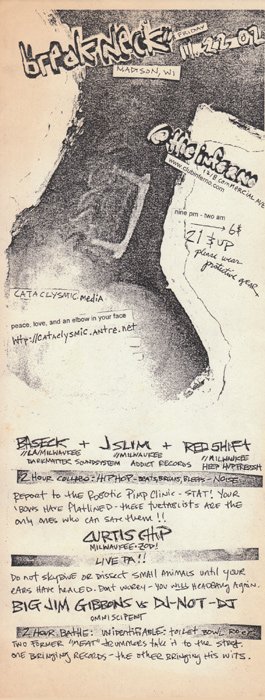 breakneck FRIDAY 11.22.02
MADISON, WI
@ the inferno
1718 COMMERCIAL AVE
www.clubinferno.com
nine pm - two am
→ 6$
21 $ UP
please wear
protective gear
CATACLYSMIC media
peace, love, and an elbow in your face
http://cataclysmic.antre.net
BASECK + J SLIM + REDSHIFT
//LA/MILWAUKEE //MILWAUKEE //MILWAUKEE
DARKMATTER SOUNDSYSTEM ADDICT RECORDS
2 HOUR COLLABO: HIPHOP - BEATS, BREAKS, BLEEPS - NOISE
REPORT TO THE ROBOTIC PIMP CLINIC - STAT! YOUR
VBOYS HAVE FLATLINED - THESE TURNTABLISTS ARE THE
ONLY ONES WHO CAN SAVE THEM!!
CURTIS CHIP
MILWAUKEE - ZOD!
LIVE PA!!
DO NOT SKYDIVE OR DISSECT SMALL ANIMALS UNTIL YOUR
EARS HAVE HEALED. DON'T WORRY - YOU WILL HEADBANG AGAIN.
BIG JIM GIBBONS VS DJ-NOT-DJ
OMNISCIENT
2 HOUR BATTLE: UNIDENTIFIABLE: TOILET BOWL ROCK
TWO FORMER "MEAT" DRUMMERS TAKE IT TO THE STREET.
ONE BRINGING RECORDS - THE OTHER BRINGING HIS WITS.